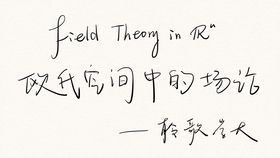 Field Theory in ℝⁿ
欧氏空间中的场论